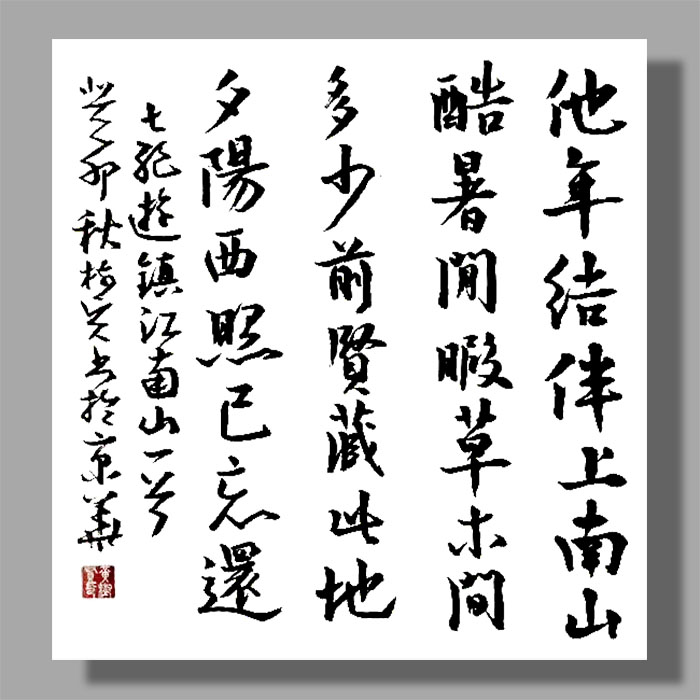 他年结伴上南山
酷暑閒暇草木間
多少前賢藏此地
夕陽西照已忘還
七絕遊鎮江南山一首
癸卯秋樹兵书於京華